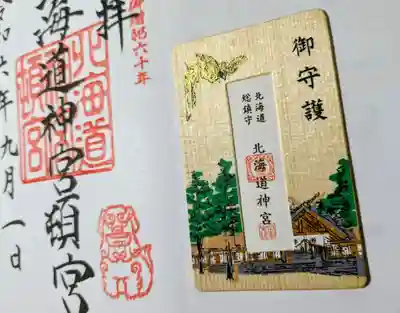 拝
御鎮祀六十年
北海道頓宮
北海道神宮頓宮
六年九月一日
御守護
北海道
総鎮守
北海道神宮